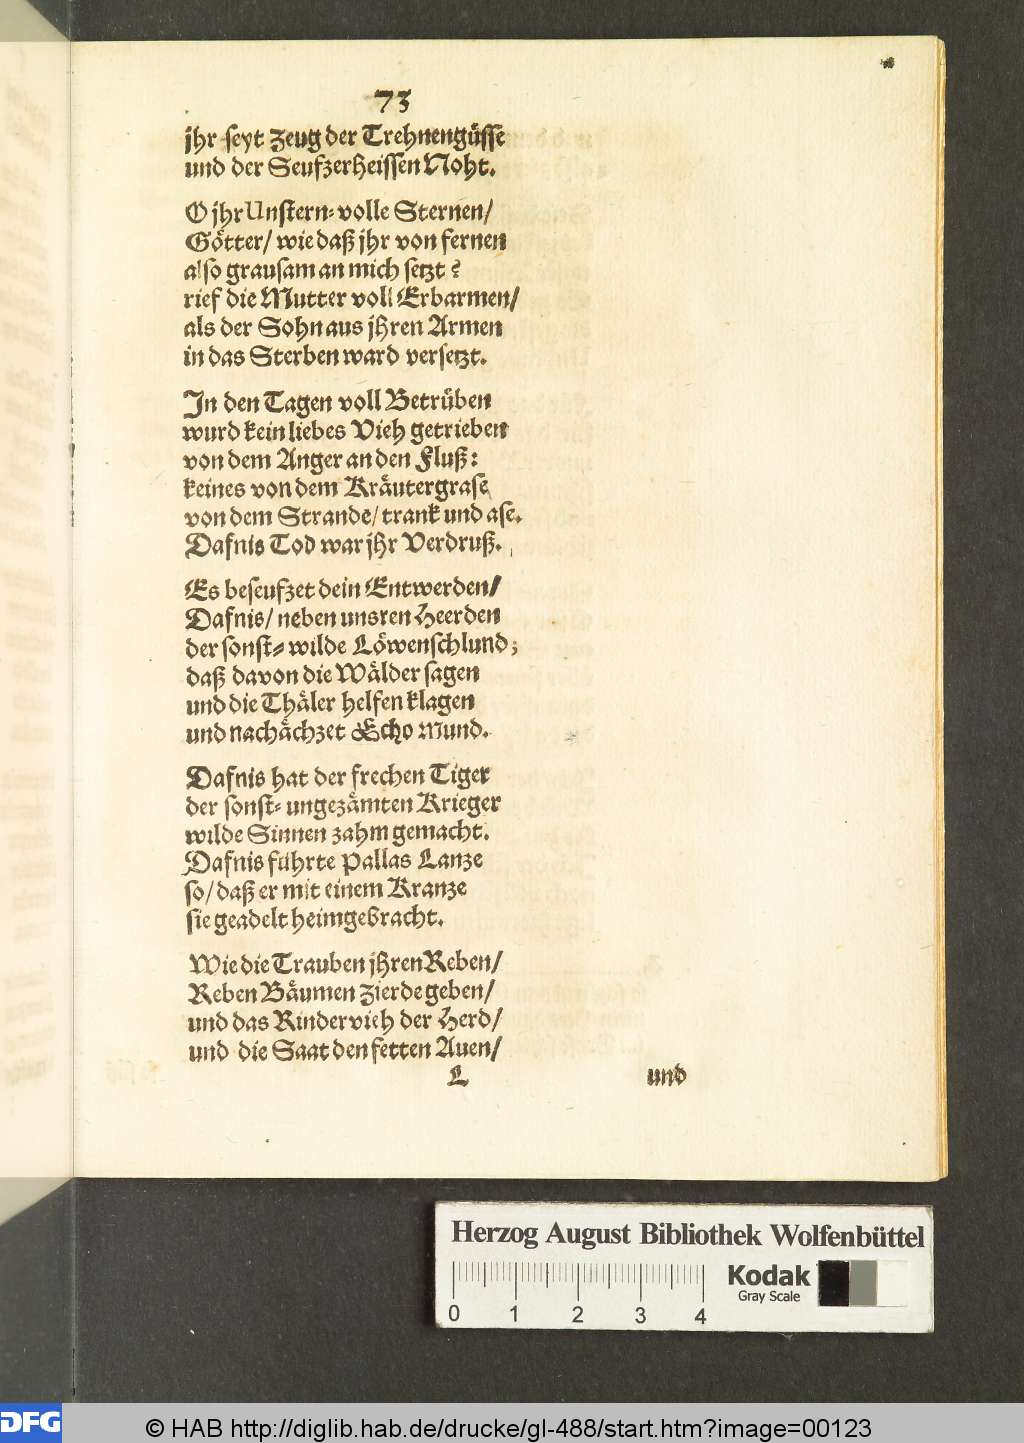 73
jhr seyt Zeug der Trehnengüsse
und der Seufzerheissen Noht.
O jhr Unstern-volle Sternen/
Götter/ wie daß jhr von fernen
also grausam an mich setzt?
rief die Mutter voll Erbarmen/
als der Sohn aus jhren Armen
in das Sterben ward versetzt.
In den Tagen voll Betrüben
wurd kein liebes Vieh getrieben
von dem Anger an den Fluß:
keines von dem Kräutergrase
von dem Strande/ trank und ase.
Dafnis Tod war jhr Verdruß.
Es beseufzet dein Entwerden/
Dafnis/ neben unsren Heerden
der sonst-wilde Löwenschlund;
daß davon die Wälder sagen
und die Thäler helfen klagen
und nachächzet Echo Mund.
Dafnis hat der frechen Tiger
der sonst-ungezämten Krieger
wilde Sinnen zahm gemacht.
Dafnis führte Pallas Lanze
so/ daß er mit einem Kranze
sie geadelt heimgebracht.
Wie die Trauben jhren Reben/
Reben Bäumen Zierde geben/
und das Rindervieh der Herd/
und die Saat den fetten Auen/
L und
Herzog August Bibliothek Wolfenbüttel
Kodak
Gray Scale
0 1 2 3 4
DFG
© HAB http://diglib.hab.de/drucke/gl-488/start.htm?image=00123